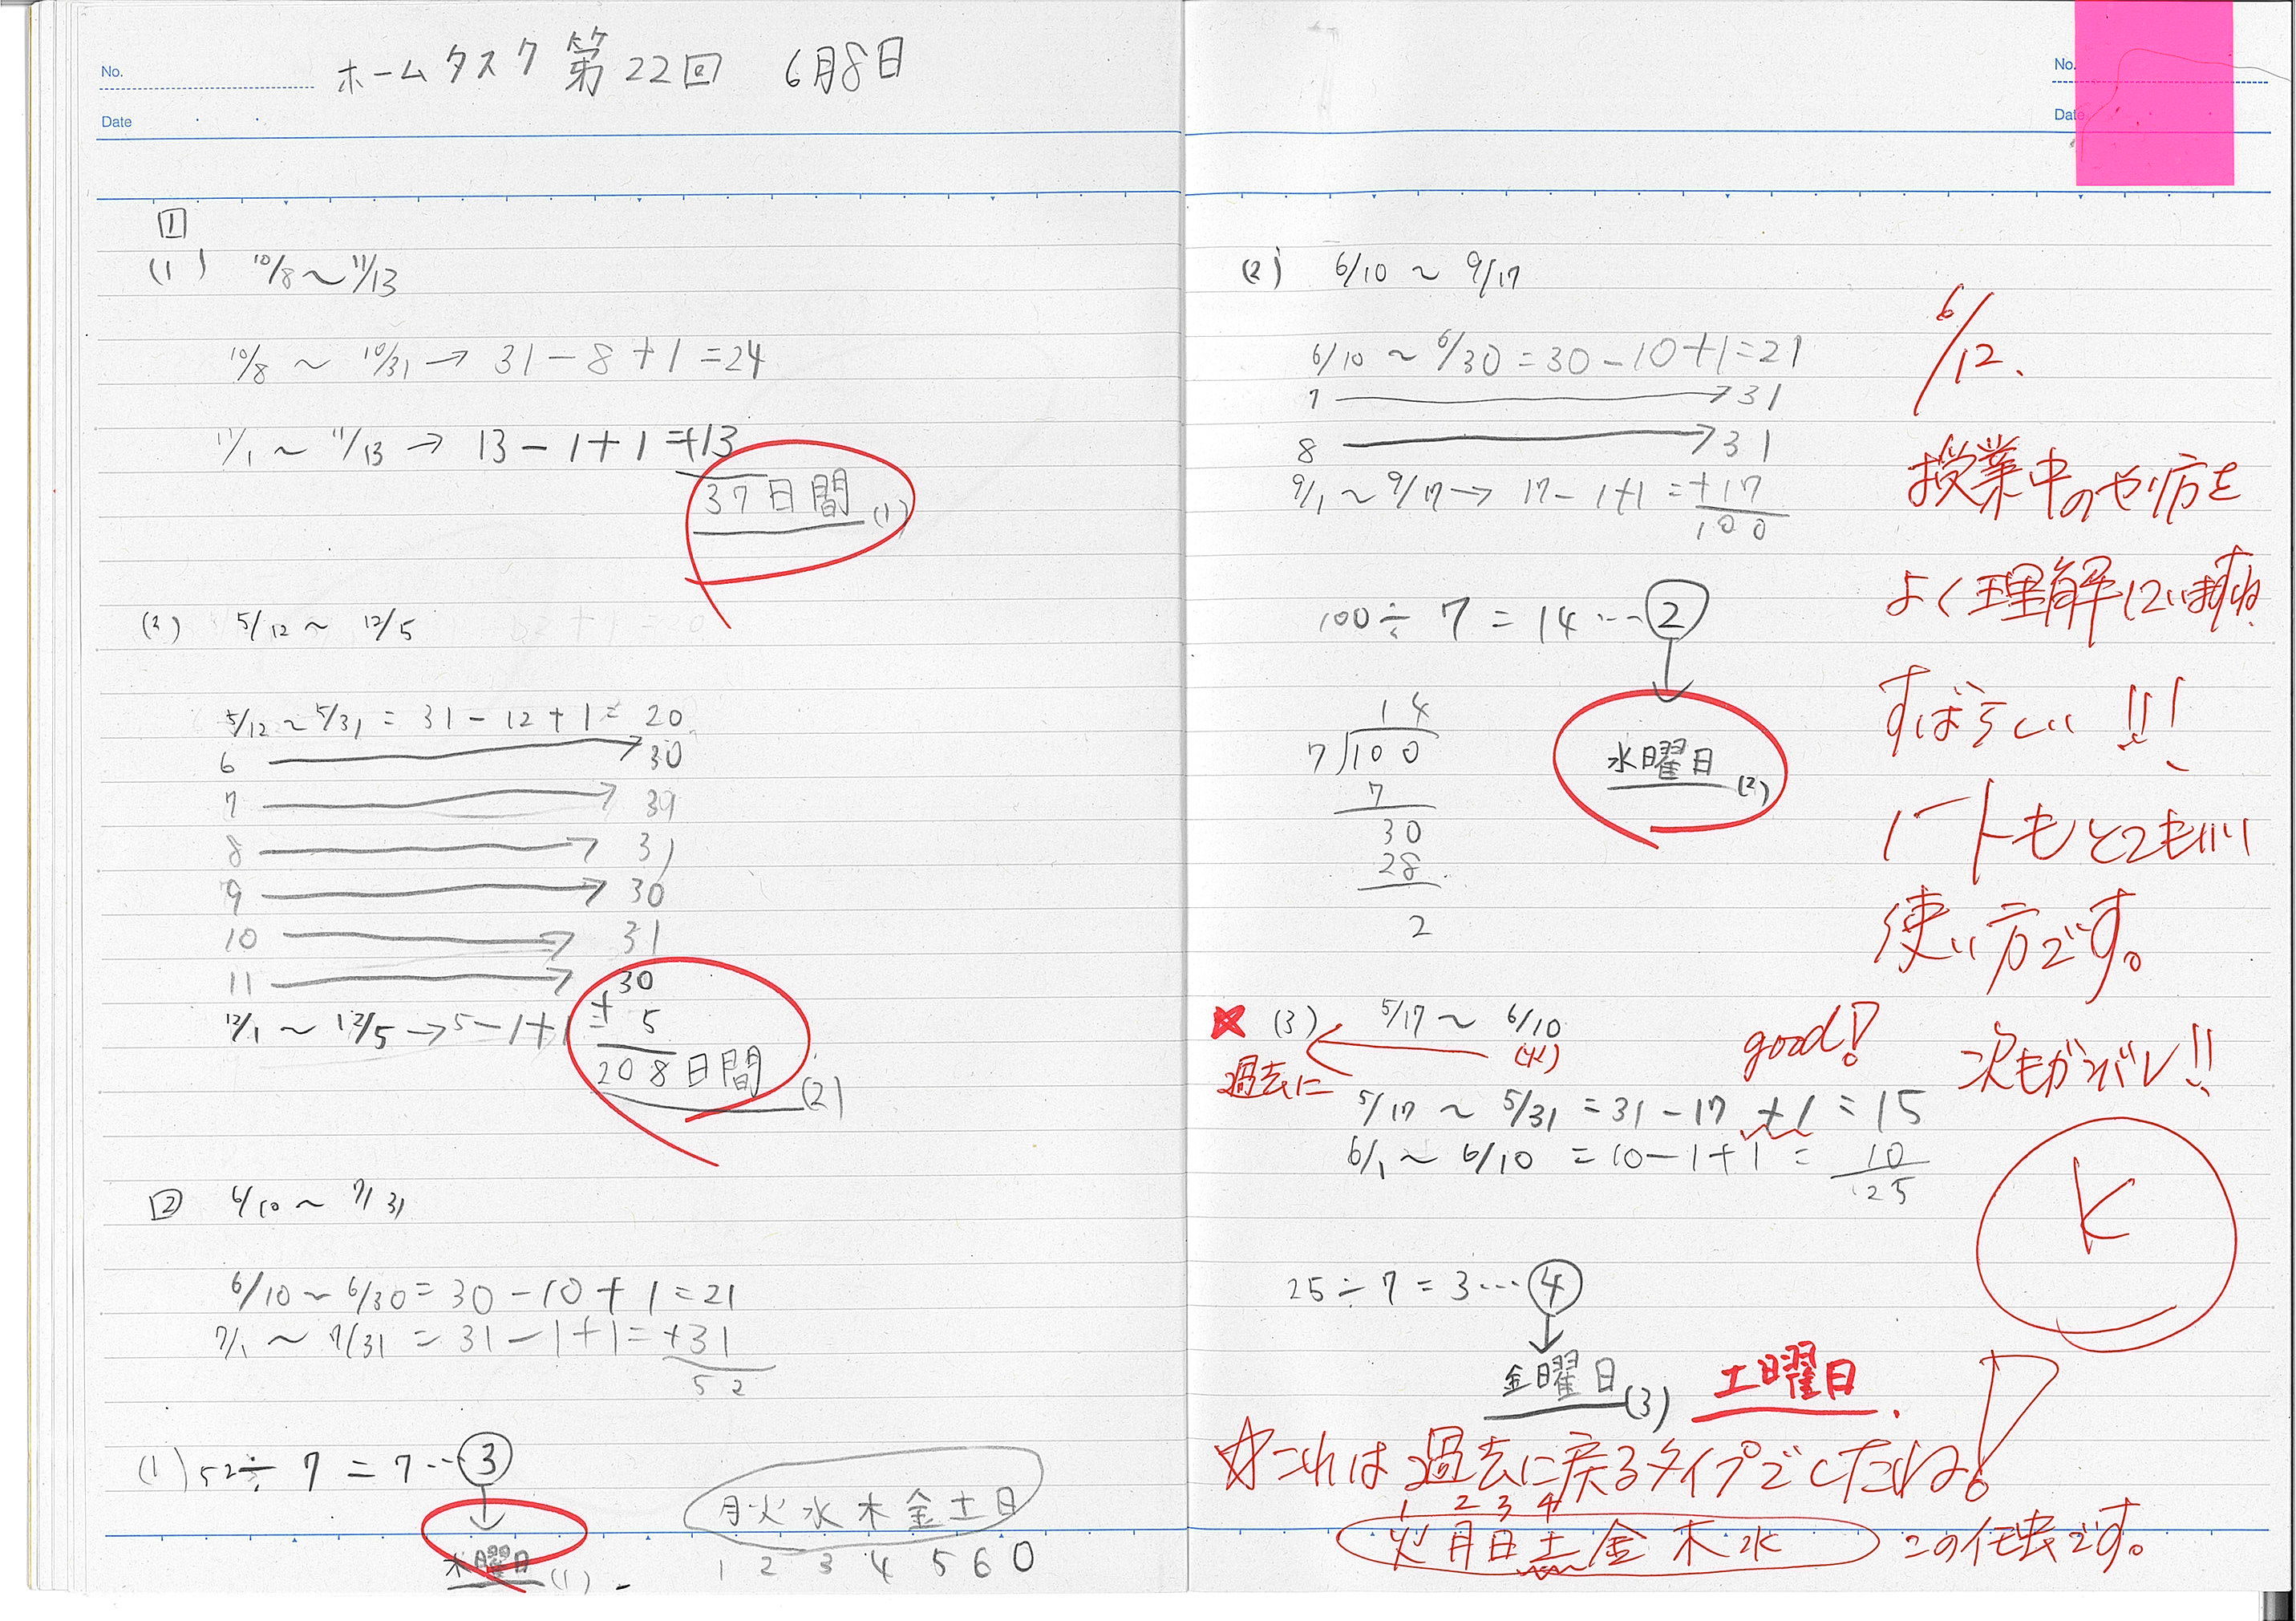 No.
Date
ホームタスク 第22回 6月8日
1
(1) 10/8～11/13
10/8 ～ 10/31 → 31－8＋1＝24
11/1 ～ 11/13 → 13－1＋1＝+13
37日間 (1)
(2) 5/12～ 12/5
5/12～5/31 = 31－12＋1= 20
6 → 30
7 → 31
8 → 31
9 → 30
10 → 31
11 → 30
12/1 ～ 12/5 → 5－1＋1 = + 5
208日間 (2)
2 6/10～ 7/31
6/10～6/30＝30－10＋1＝21
7/1 ～ 7/31 = 31－1＋1＝+31
52
(1) 52÷ 7 = 7…③
↓
(1)
月火水木金土日
1 2 3 4 5 6 0
No.
Date
(2) 6/10 ～ 9/17
6/10 ～ 6/30＝30－10＋1＝21
7 → 31
8 → 31
9/1 ～ 9/17→ 17－1+1 = +17
100
100÷ 7 = 14…②
↓
水曜日 (2)
14
7)100
7
30
28
2
(3) 5/17 ～ 6/10
(火)
過去に
5/17 ～ 5/31 = 31－17 +1 = 15
6/1 ～ 6/10 = 10－1＋1 = 10
25
25÷7＝3…④
↓
金曜日 (3) 土曜日.
☆これは過去に戻るタイプでしたね。
1 2 3 4
火月日土金木水 この仕虫です。
6/12.
授業中のやり方を
よく理解していますね
すばらしい!!!
ノートもとてもいい
使い方です。
good! 次もガンバレ!!
K